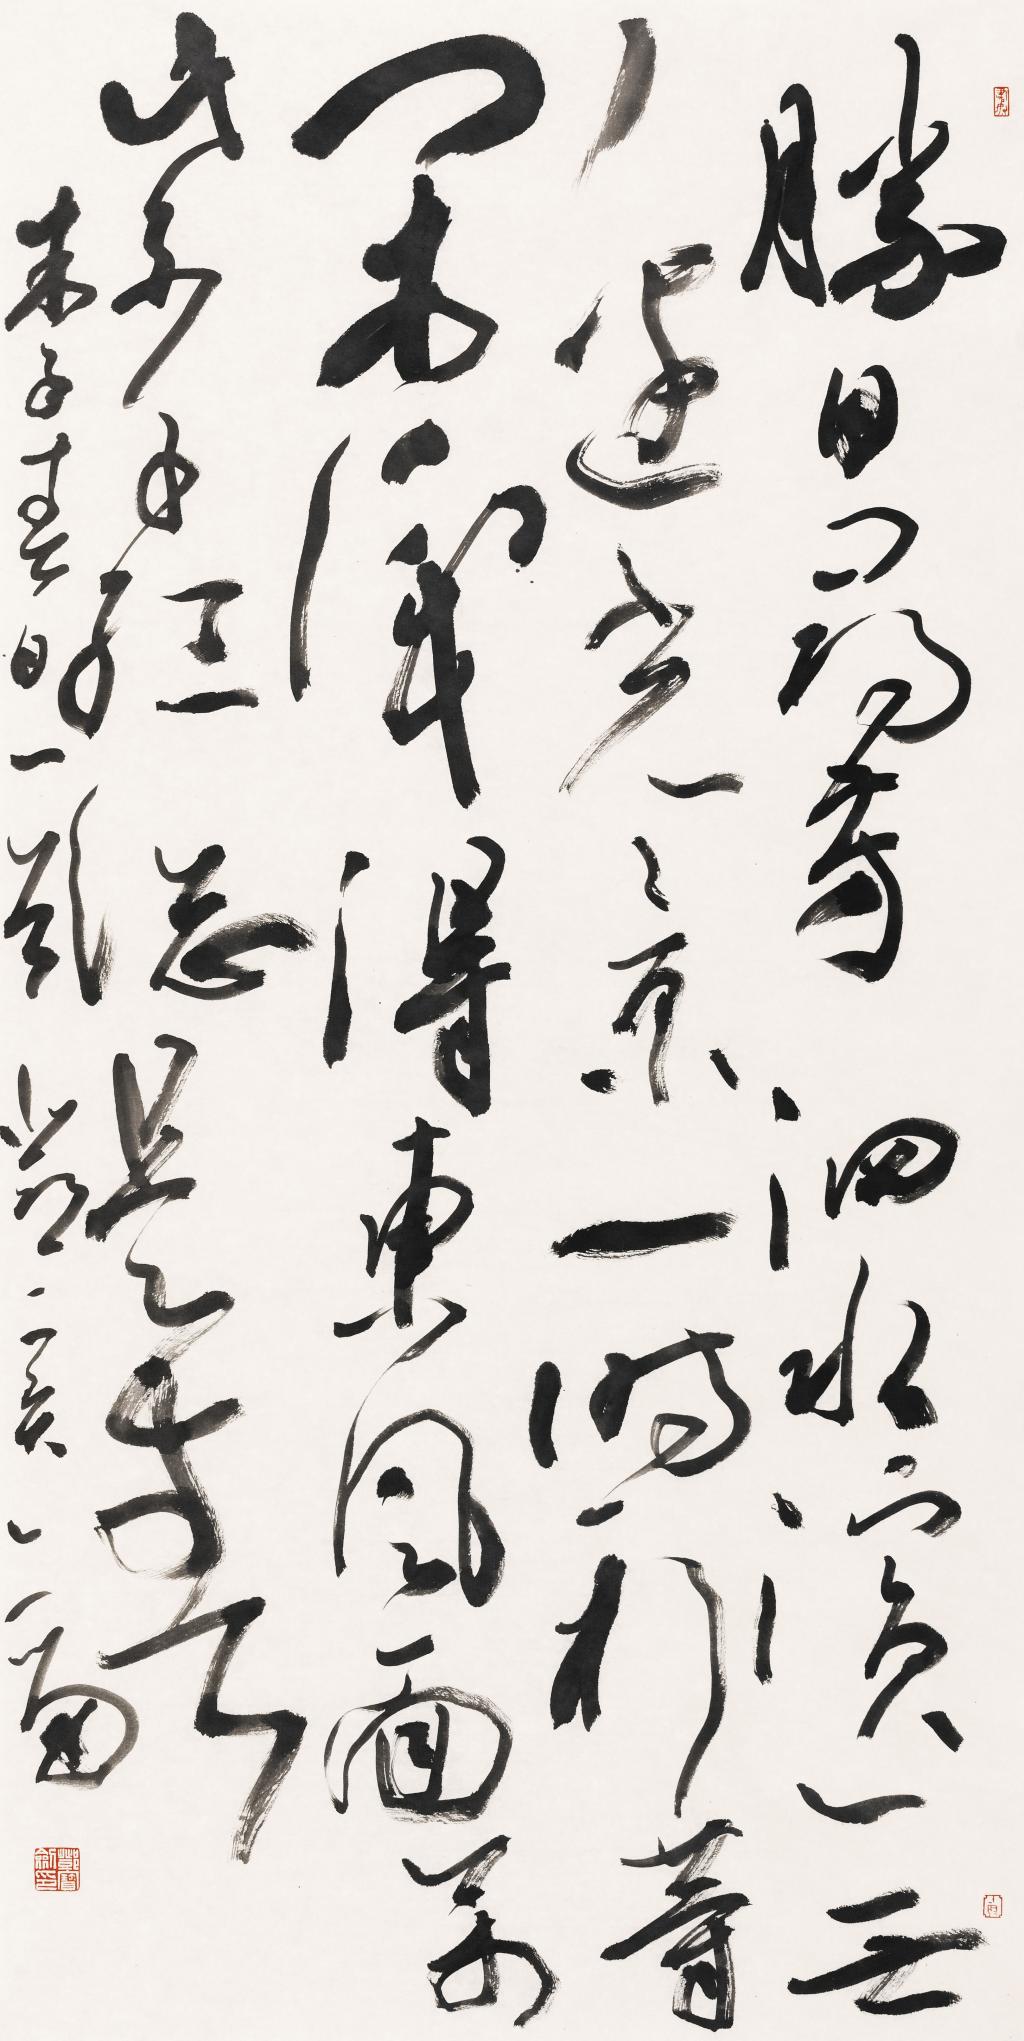 勝日尋芳泗水濱无
邊光景一時新等
閒識得東風面萬
紫千紅總是春
朱子春日一